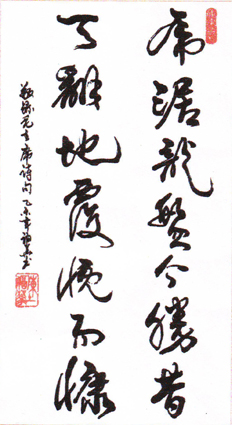 虎踞龍盤今勝昔
天翻地覆慨而慷
敬録毛主席詩句